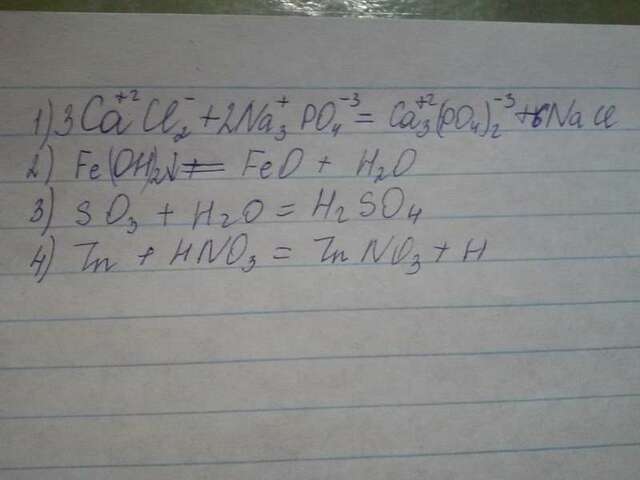 1) 3Ca⁺²Cl₂⁻ + 2Na₃⁺PO₄⁻³ = Ca₃⁺²(PO₄)₂⁻³ + 6NaCl
2) Fe(OH)₂↓ = FeO + H₂O
3) SO₃ + H₂O = H₂SO₄
4) Zn + HNO₃ = Zn NO₃ + H